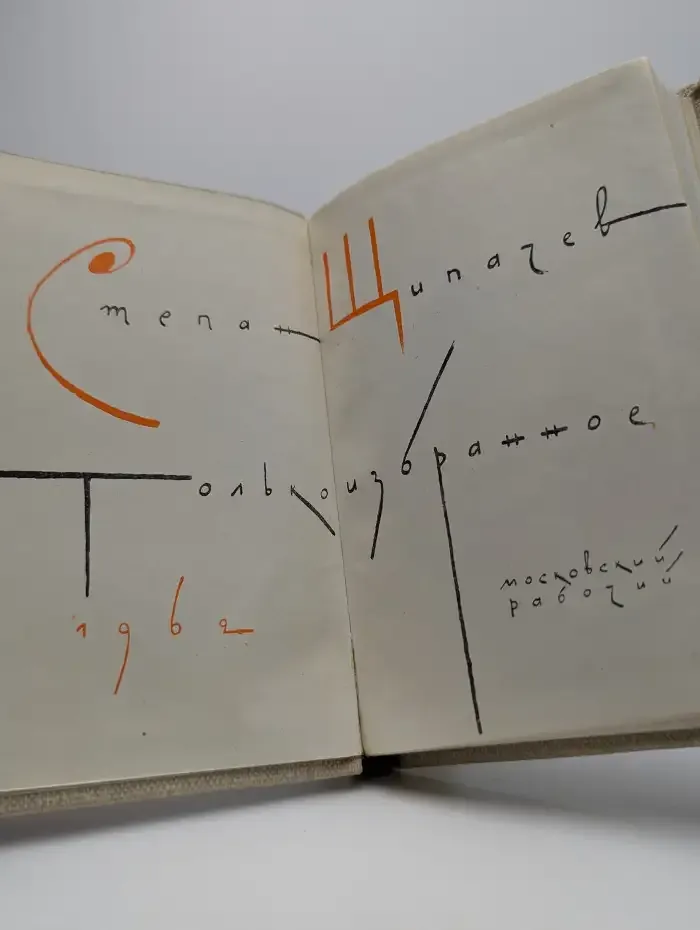 Степан Щипачев
Только избранное
1962
московский
рабочий